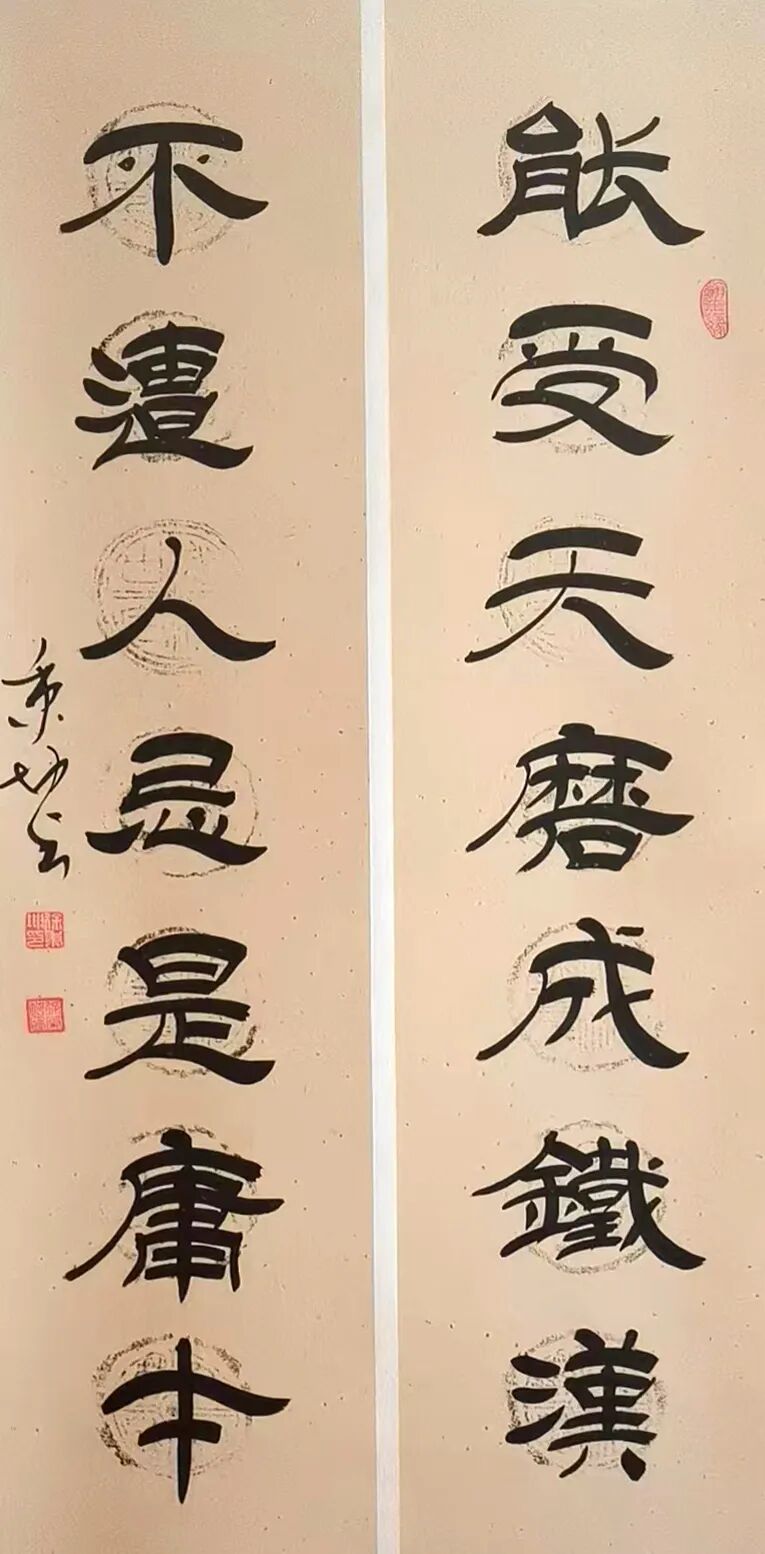 能受天磨成鐵漢
不遭人忌是庸才